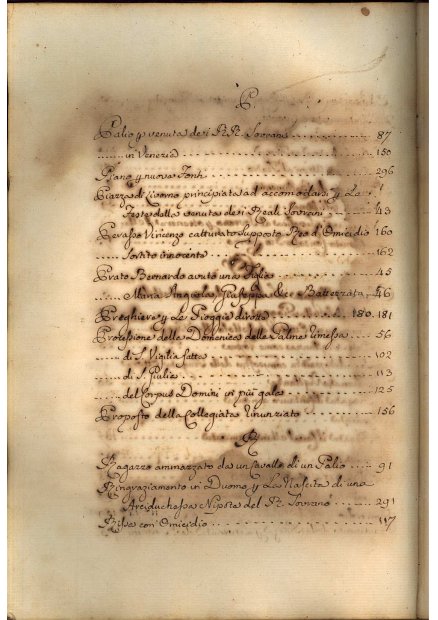 P.
Palio p venuta dei R.R. Sovrani ........ 87
...... in Venezia ........ 150
Piano p nuove ........ 296
Piazza di Livorno principiata ad accomodarsi p La
Festa della venuta dei Reali Sovrani ...... 43
Perassa Vincenzo catturato Supposto Reo d'Omicidio 160
Sortito innocente ........ 162
Prato Bernardo avuto una Figlia ........ 45
...... Maria Angiola Giuseppa &c Battezzata .. 46
Preghiere p Le Pioggie dirote ........ 180. 181
Processione della Domenica delle Palme rimessa .... 56
...... di S. Vigilia fatta ........ 102
...... di S. Giulia ........ 113
...... del Corpus Domini in più gala ........ 125
Proposto della Collegiata rinunziato ........ 156
R
Ragazzo ammazzato da un Cavallo di un Palio .... 91
Ringraziamento in Duomo p La Nascita di una
Arciduchessa Nipote del R. Sovrano .... 291
Rissa con Omicidio ........ 117